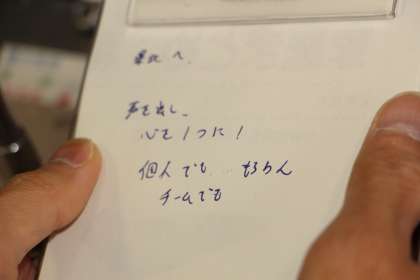 へ
声を出し、
心を1つに!
個人でも もちろん
チームでも